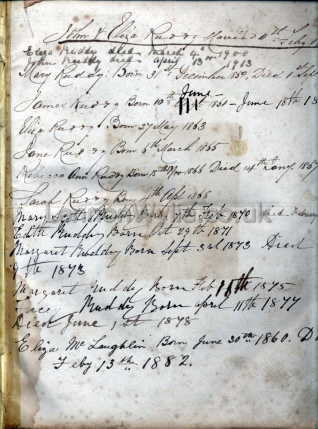 John & Eliza Ruddy Married 4th Feby
Eliza Ruddy died March 4th 1900
John Ruddy died April 13th 1913
Mary Ruddy Born 31st December Died 1st Feb
June
James Ruddy Born 10th 1861 - June 18th
Eliza Ruddy Born 27 May 1863
Jane Ruddy Born 6th March 1865
Rebecca Ann Ruddy Born 15th Nov 1866 Died 14th Jany. 1867
Sarah Ruddy Born 7th Apl 1868
Mary Ruddy Born 7th Feb 1870 Died February
Edith Ruddy Born Oct 29th 1871
Margaret Ruddy Born Sept 3rd 1873 Died
9th 1873
Margaret Ruddy Born Feb 18th 1875
Ruddy Born April 11th 1877
Died June 1st 1878
Eliza Mc Laughlin Born June 30th 1860. D
Feby 13th 1882.